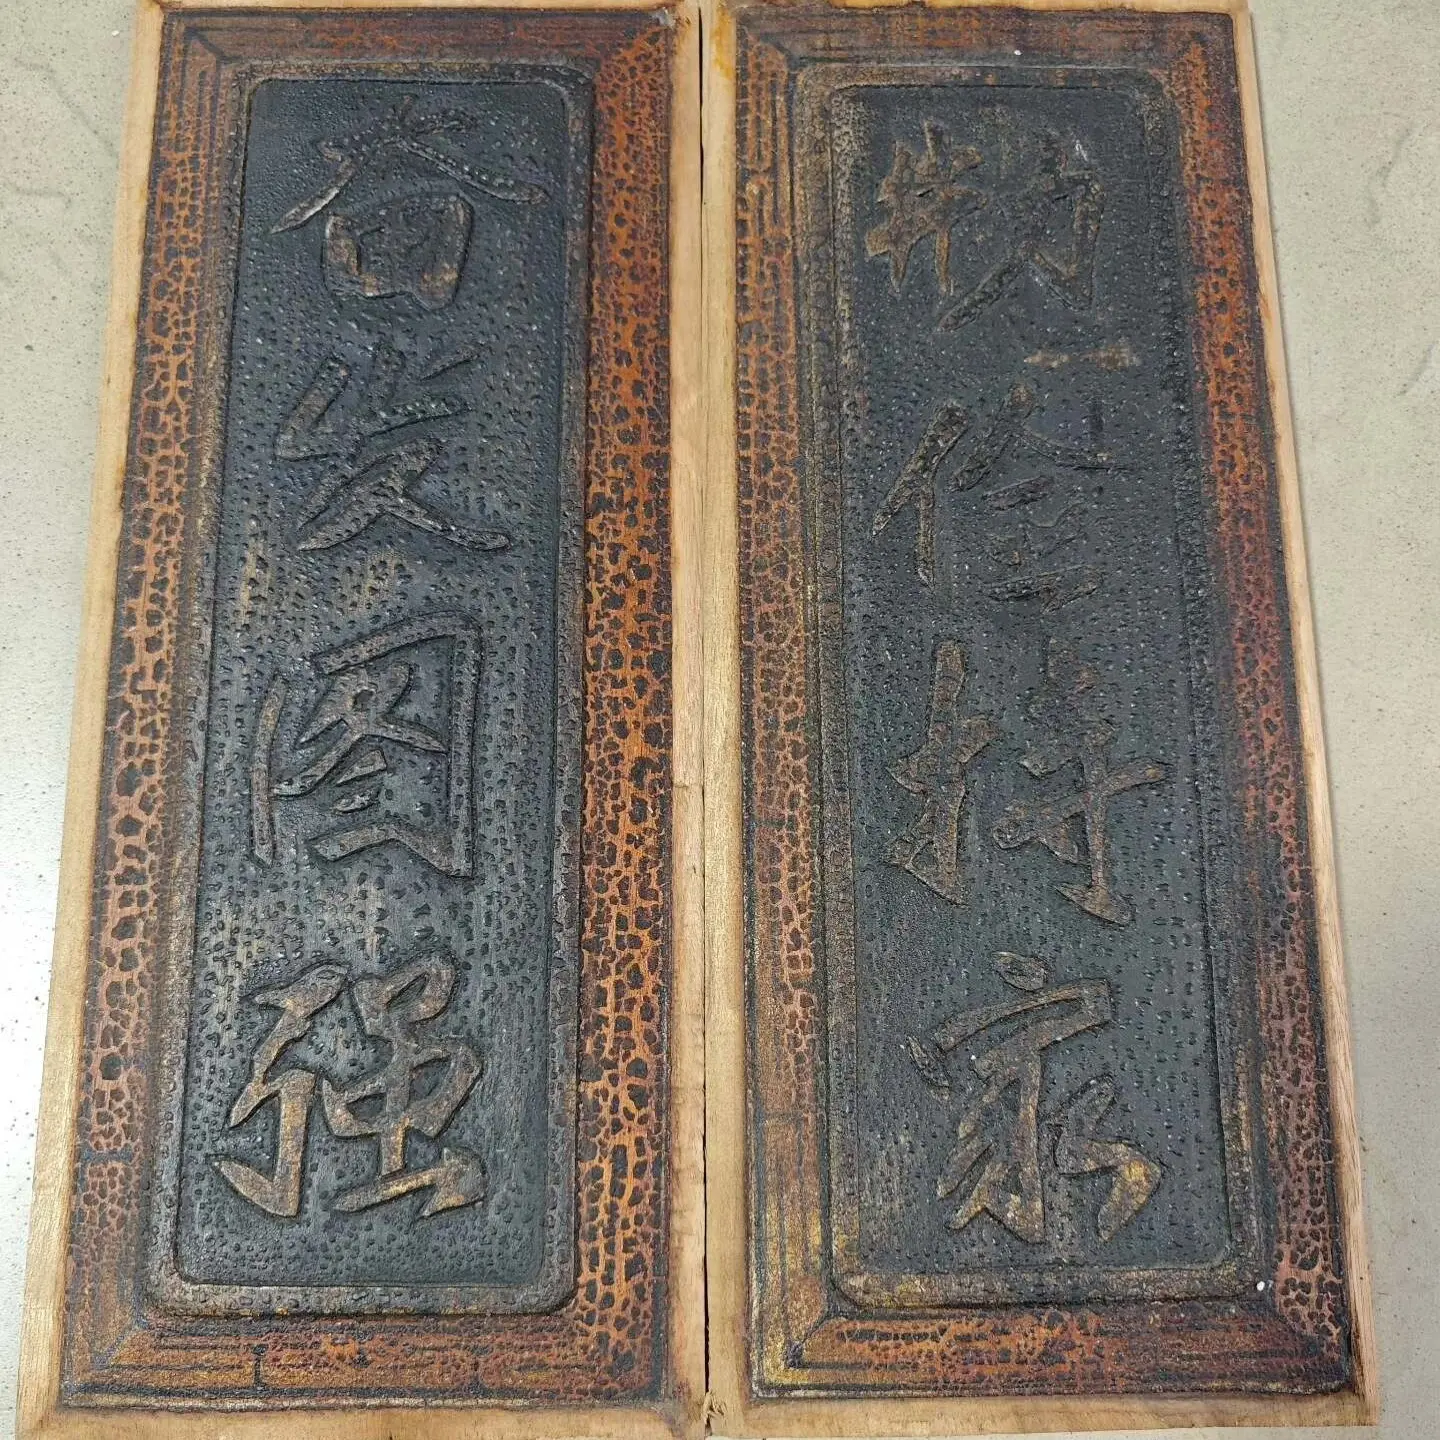 勤俭持家
奋发图强